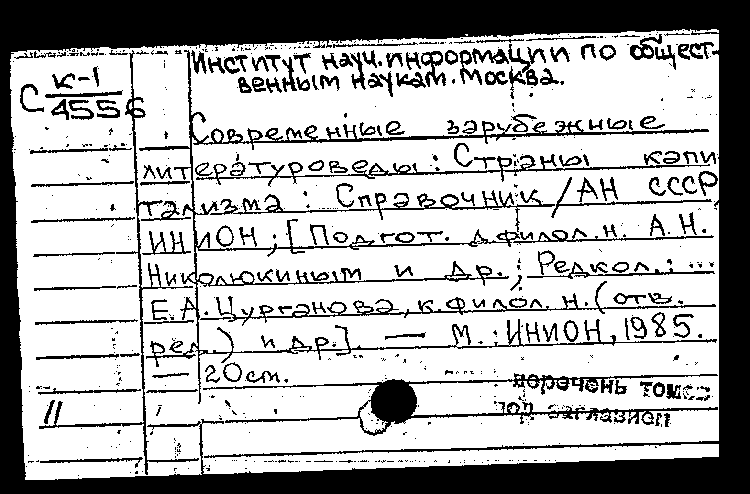 Институт науч. информации по общест-
венным наукам. Москва.
С К-1
4556
Современные зарубежные
литературоведы: Страны капи
тализма: Справочник / АН СССР,
ИНИОН; [Подгот. д.филол.н. А.Н.
Николюкиным и др.; Редкол.: ...
Е.А. Цурганова, к.филол.н. (отв.
ред.) и др.]. — М.: ИНИОН, 1985.
— 20 см.
перечень томов
под заглавием
11